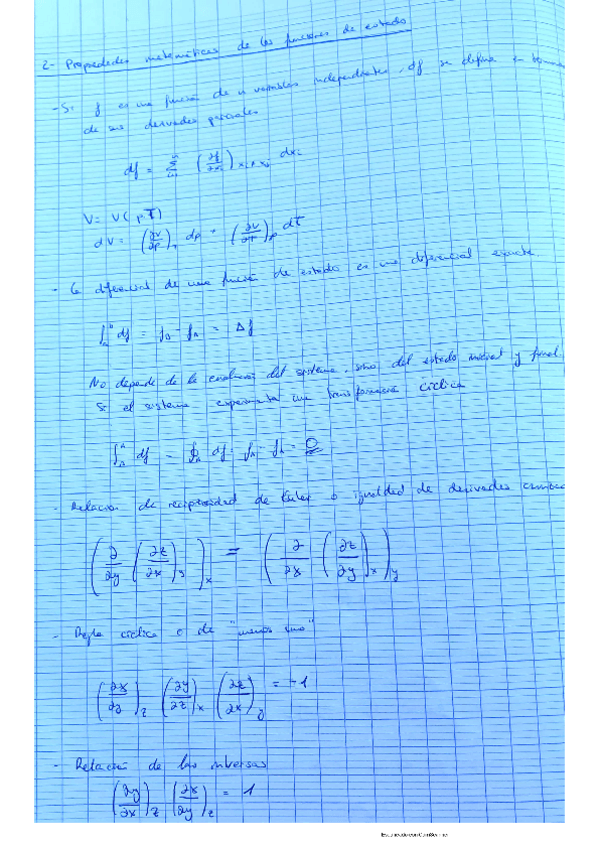 2- Propiedades matemáticas de las funciones de estado
- Si f es una función de n variables independientes, df se define en
de sus derivadas parciales
df = Σ (∂f/∂xi) dxi
V = V(p,T)
dV = (∂V/∂p)_T dp + (∂V/∂T)_p dT
- La diferencial de una función de estado es una diferencial exacta
∫_A^B df = f_B - f_A = Δf
No depende de la evolución del sistema, sino del estado inicial y final.
Si el sistema experimenta una transformación cíclica
∫_A^A df = ∮_A df = f_A - f_A = 0
- Relación de reciprocidad de Euler o igualdad de derivadas
(∂/∂y (∂z/∂x)_y)_x = (∂/∂x (∂z/∂y)_x)_y
- Regla cíclica o de "menos uno"
(∂x/∂y)_z (∂y/∂z)_x (∂z/∂x)_y = -1
- Relación de las inversas
(∂y/∂x)_z (∂x/∂y)_z = 1
Escaneado con CamScanner